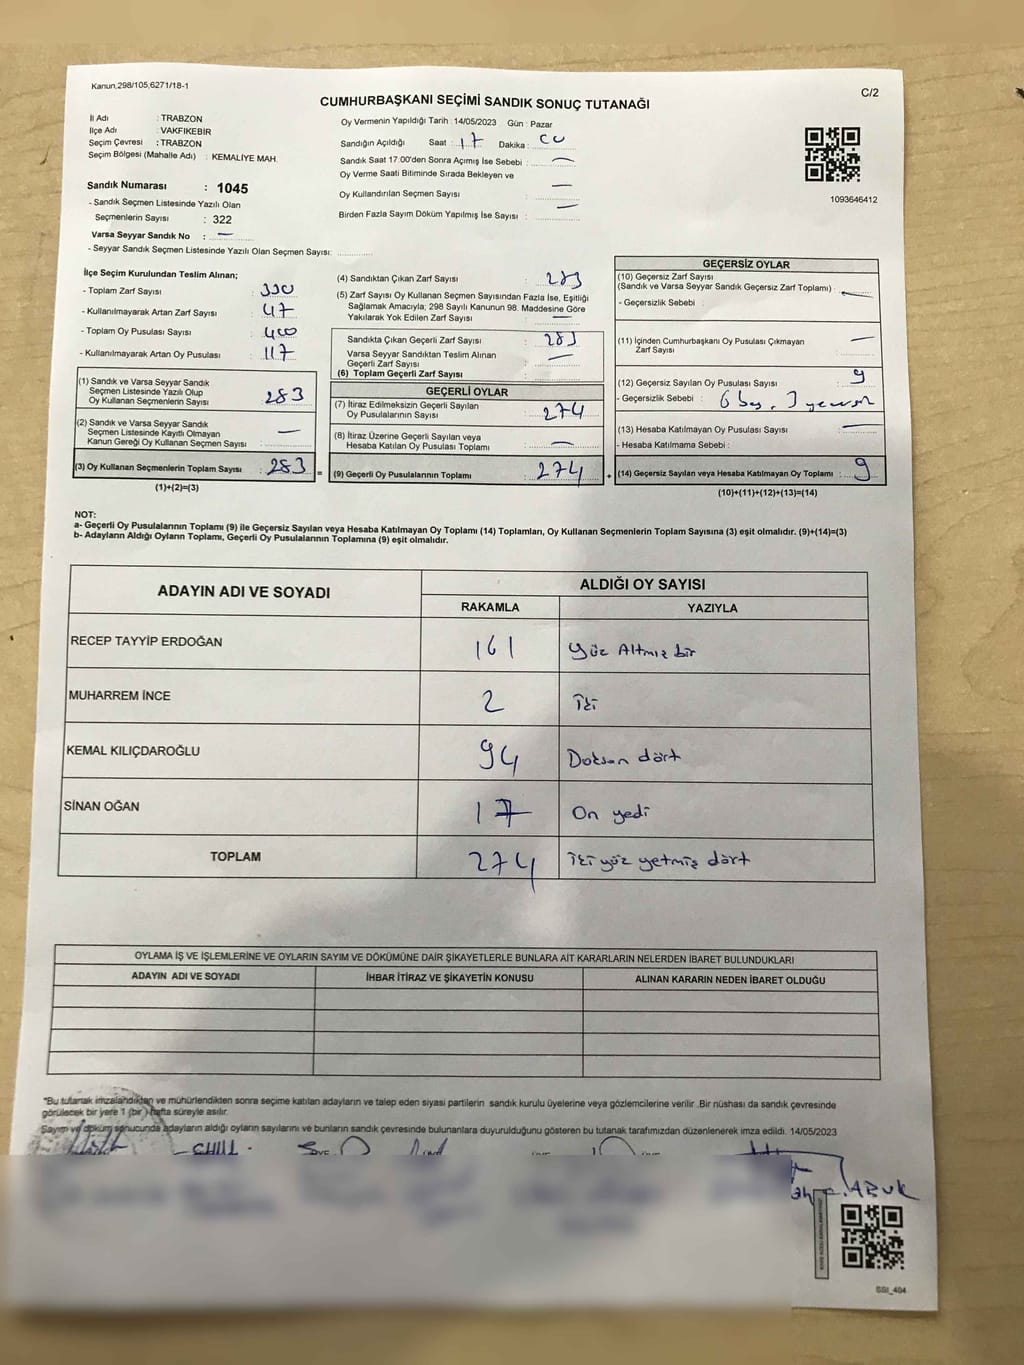 Kanun,298/105,6271/18-1
C/2
CUMHURBAŞKANI SEÇİMİ SANDIK SONUÇ TUTANAĞI
İl Adı : TRABZON
İlçe Adı : VAKFIKEBİR
Seçim Çevresi : TRABZON
Seçim Bölgesi (Mahalle Adı) : KEMALİYE MAH.
Sandık Numarası : 1045
- Sandık Seçmen Listesinde Yazılı Olan
Seçmenlerin Sayısı : 322
Varsa Seyyar Sandık No : —
- Seyyar Sandık Seçmen Listesinde Yazılı Olan Seçmen Sayısı:
Oy Vermenin Yapıldığı Tarih : 14/05/2023 Gün : Pazar
Sandığın Açıldığı Saat : 17 Dakika :
Sandık Saat 17:00'den Sonra Açımış İse Sebebi : —
Oy Verme Saati Bitiminde Sırada Bekleyen ve
Oy Kullandırılan Seçmen Sayısı : —
Birden Fazla Sayım Döküm Yapılmış İse Sayısı : —
1093646412
İlçe Seçim Kurulundan Teslim Alınan;
- Toplam Zarf Sayısı : 330
- Kullanılmayarak Artan Zarf Sayısı : 47
- Toplam Oy Pusulası Sayısı : 400
- Kullanılmayarak Artan Oy Pusulası : 117
(1) Sandık ve Varsa Seyyar Sandık
Seçmen Listesinde Yazılı Olup
Oy Kullanan Seçmenlerin Sayısı : 283
(2) Sandık ve Varsa Seyyar Sandık
Seçmen Listesinde Kayıtlı Olmayan
Kanun Gereği Oy Kullanan Seçmen Sayısı : —
(3) Oy Kullanan Seçmenlerin Toplam Sayısı : 283 =
(1)+(2)=(3)
(4) Sandıktan Çıkan Zarf Sayısı : 283
(5) Zarf Sayısı Oy Kullanan Seçmen Sayısından Fazla İse, Eşitliği
Sağlamak Amacıyla, 298 Sayılı Kanunun 98. Maddesine Göre
Yakılarak Yok Edilen Zarf Sayısı : —
Sandıkta Çıkan Geçerli Zarf Sayısı : 283
Varsa Seyyar Sandıktan Teslim Alınan
Geçerli Zarf Sayısı : —
(6) Toplam Geçerli Zarf Sayısı :
GEÇERLİ OYLAR
(7) İtiraz Edilmeksizin Geçerli Sayılan
Oy Pusulalarının Sayısı : 274
(8) İtiraz Üzerine Geçerli Sayılan veya
Hesaba Katılan Oy Pusulası Toplamı : —
(9) Geçerli Oy Pusulalarının Toplamı : 274 +
GEÇERSİZ OYLAR
(10) Geçersiz Zarf Sayısı
(Sandık ve Varsa Seyyar Sandık Geçersiz Zarf Toplamı) : —
- Geçersizlik Sebebi :
(11) İçinden Cumhurbaşkanı Oy Pusulası Çıkmayan
Zarf Sayısı : —
(12) Geçersiz Sayılan Oy Pusulası Sayısı : 9
- Geçersizlik Sebebi : 6 boş, 3
(13) Hesaba Katılmayan Oy Pusulası Sayısı : —
- Hesaba Katılmama Sebebi :
(14) Geçersiz Sayılan veya Hesaba Katılmayan Oy Toplamı : 9
(10)+(11)+(12)+(13)=(14)
NOT:
a- Geçerli Oy Pusulalarının Toplamı (9) ile Geçersiz Sayılan veya Hesaba Katılmayan Oy Toplamı (14) Toplamları, Oy Kullanan Seçmenlerin Toplam Sayısına (3) eşit olmalıdır. (9)+(14)=(3)
b- Adayların Aldığı Oyların Toplamı, Geçerli Oy Pusulalarının Toplamına (9) eşit olmalıdır.
ADAYIN ADI VE SOYADI
ALDIĞI OY SAYISI
RAKAMLA YAZIYLA
RECEP TAYYİP ERDOĞAN 161 Yüz Altmış bir
MUHARREM İNCE 2 İki
KEMAL KILIÇDAROĞLU 94 Doksan dört
SİNAN OĞAN 17 On yedi
TOPLAM 274 iki yüz yetmiş dört
OYLAMA İŞ VE İŞLEMLERİNE VE OYLARIN SAYIM VE DÖKÜMÜNE DAİR ŞİKAYETLERLE BUNLARA AİT KARARLARIN NELERDEN İBARET BULUNDUKLARI
ADAYIN ADI VE SOYADI İHBAR İTİRAZ VE ŞİKAYETİN KONUSU ALINAN KARARIN NEDEN İBARET OLDUĞU
*Bu tutanak imzalandıktan ve mühürlendikten sonra seçime katılan adayların ve talep eden siyasi partilerin sandık kurulu üyelerine veya gözlemcilerine verilir. Bir nüshası da sandık çevresinde
görülecek bir yere 1 (bir) hafta süreyle asılır.
Sayım ve döküm sonucunda adayların aldığı oyların sayılarını ve bunların sandık çevresinde bulunanlara duyurulduğunu gösteren bu tutanak tarafımızdan düzenlenerek imza edildi. 14/05/2023
SSI_404